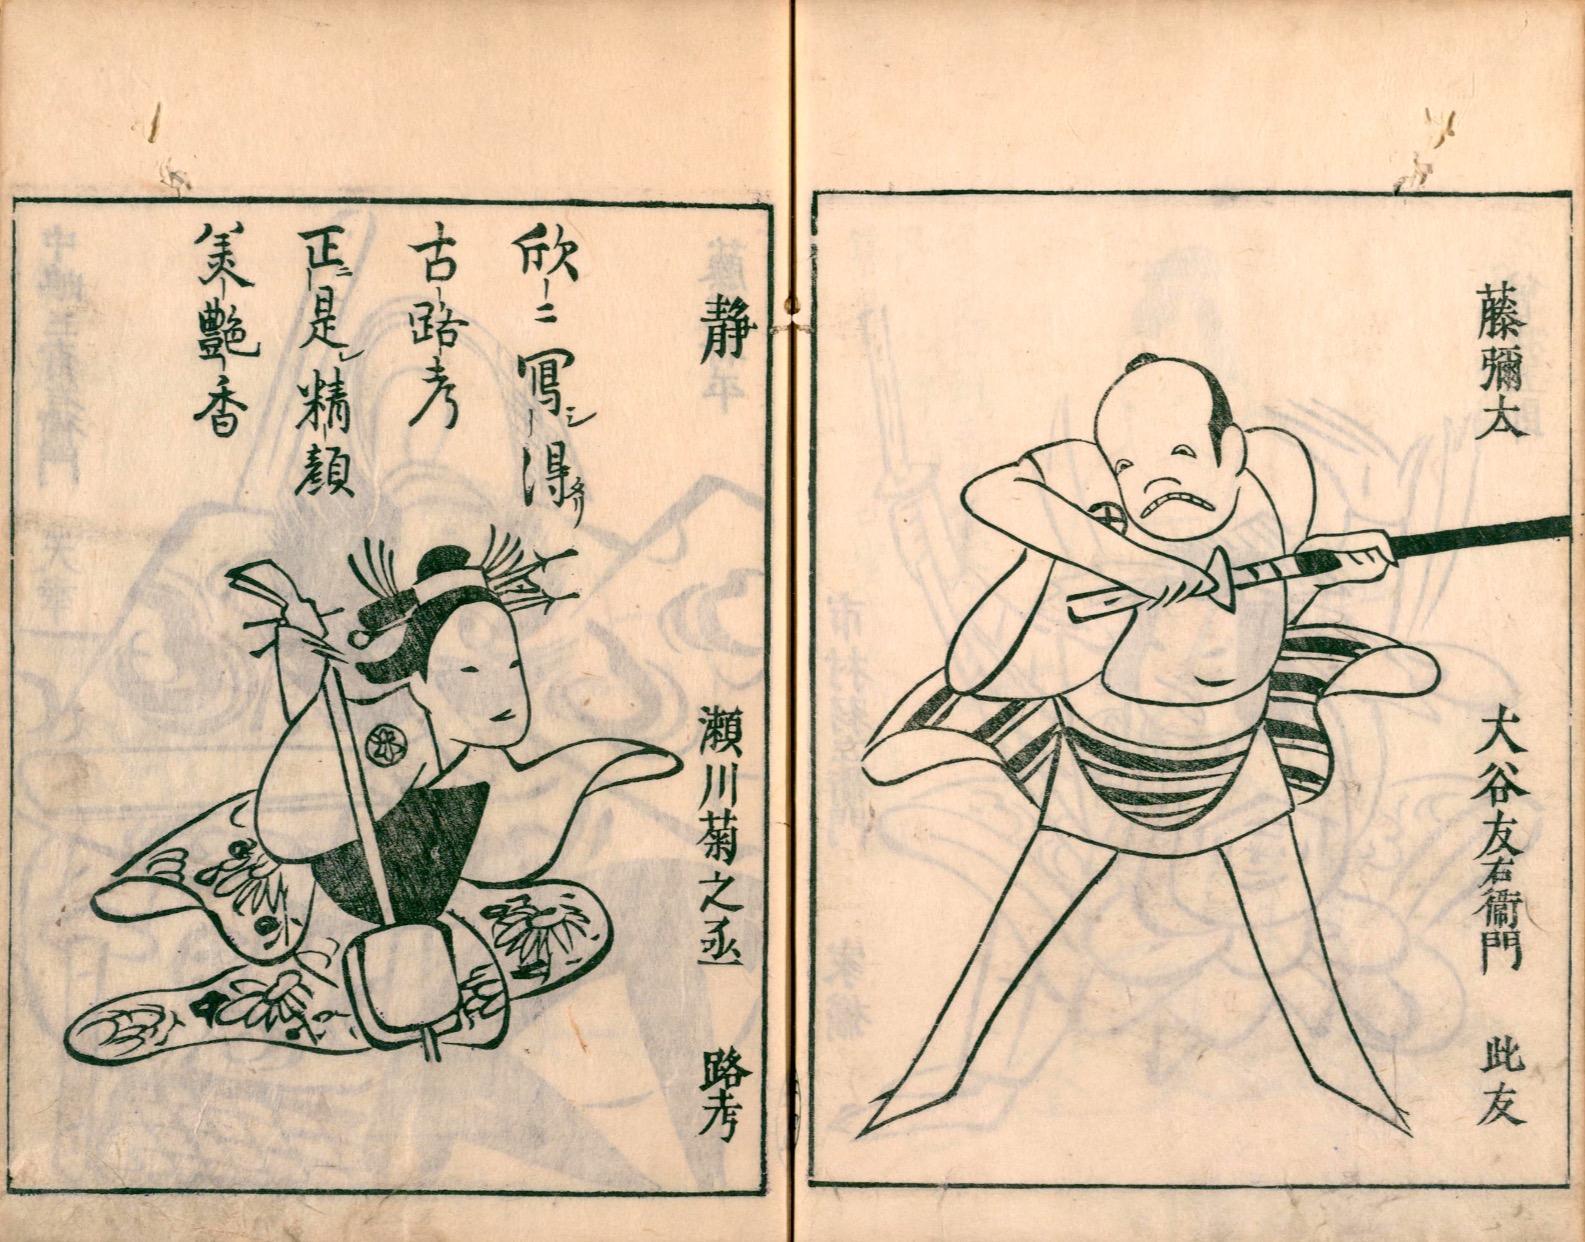 藤彌太
大谷友右衛門
此友
静
瀬川菊之丞
路考
欣ニ寫シ得タリ
古路考
正ニ是レ精顔
美艶香